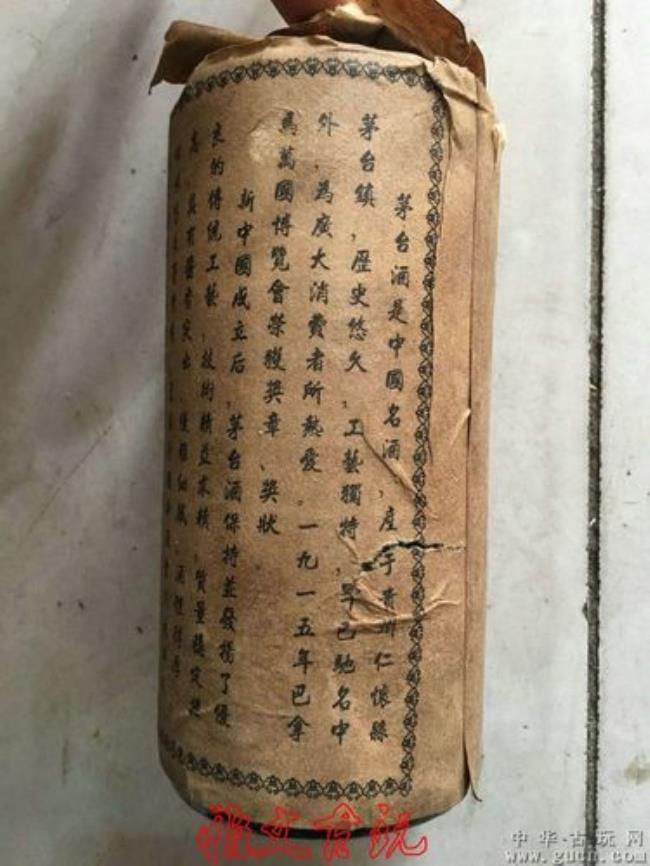 茅台酒是中國名酒，產于貴州仁懷縣
茅台鎮，歷史悠久，工藝獨特，早已馳名中
外，為廣大消費者所熱愛。一九一五年巴拿
馬萬國博覽會榮獲奬章、奬狀。
新中國成立后，茅台酒保持並發揚了優
良的傳統工藝，技術精益求精，質量穩定提
高，具有醬香突出、優雅細膩、酒體醇厚
中华古玩网
www.gucn.com